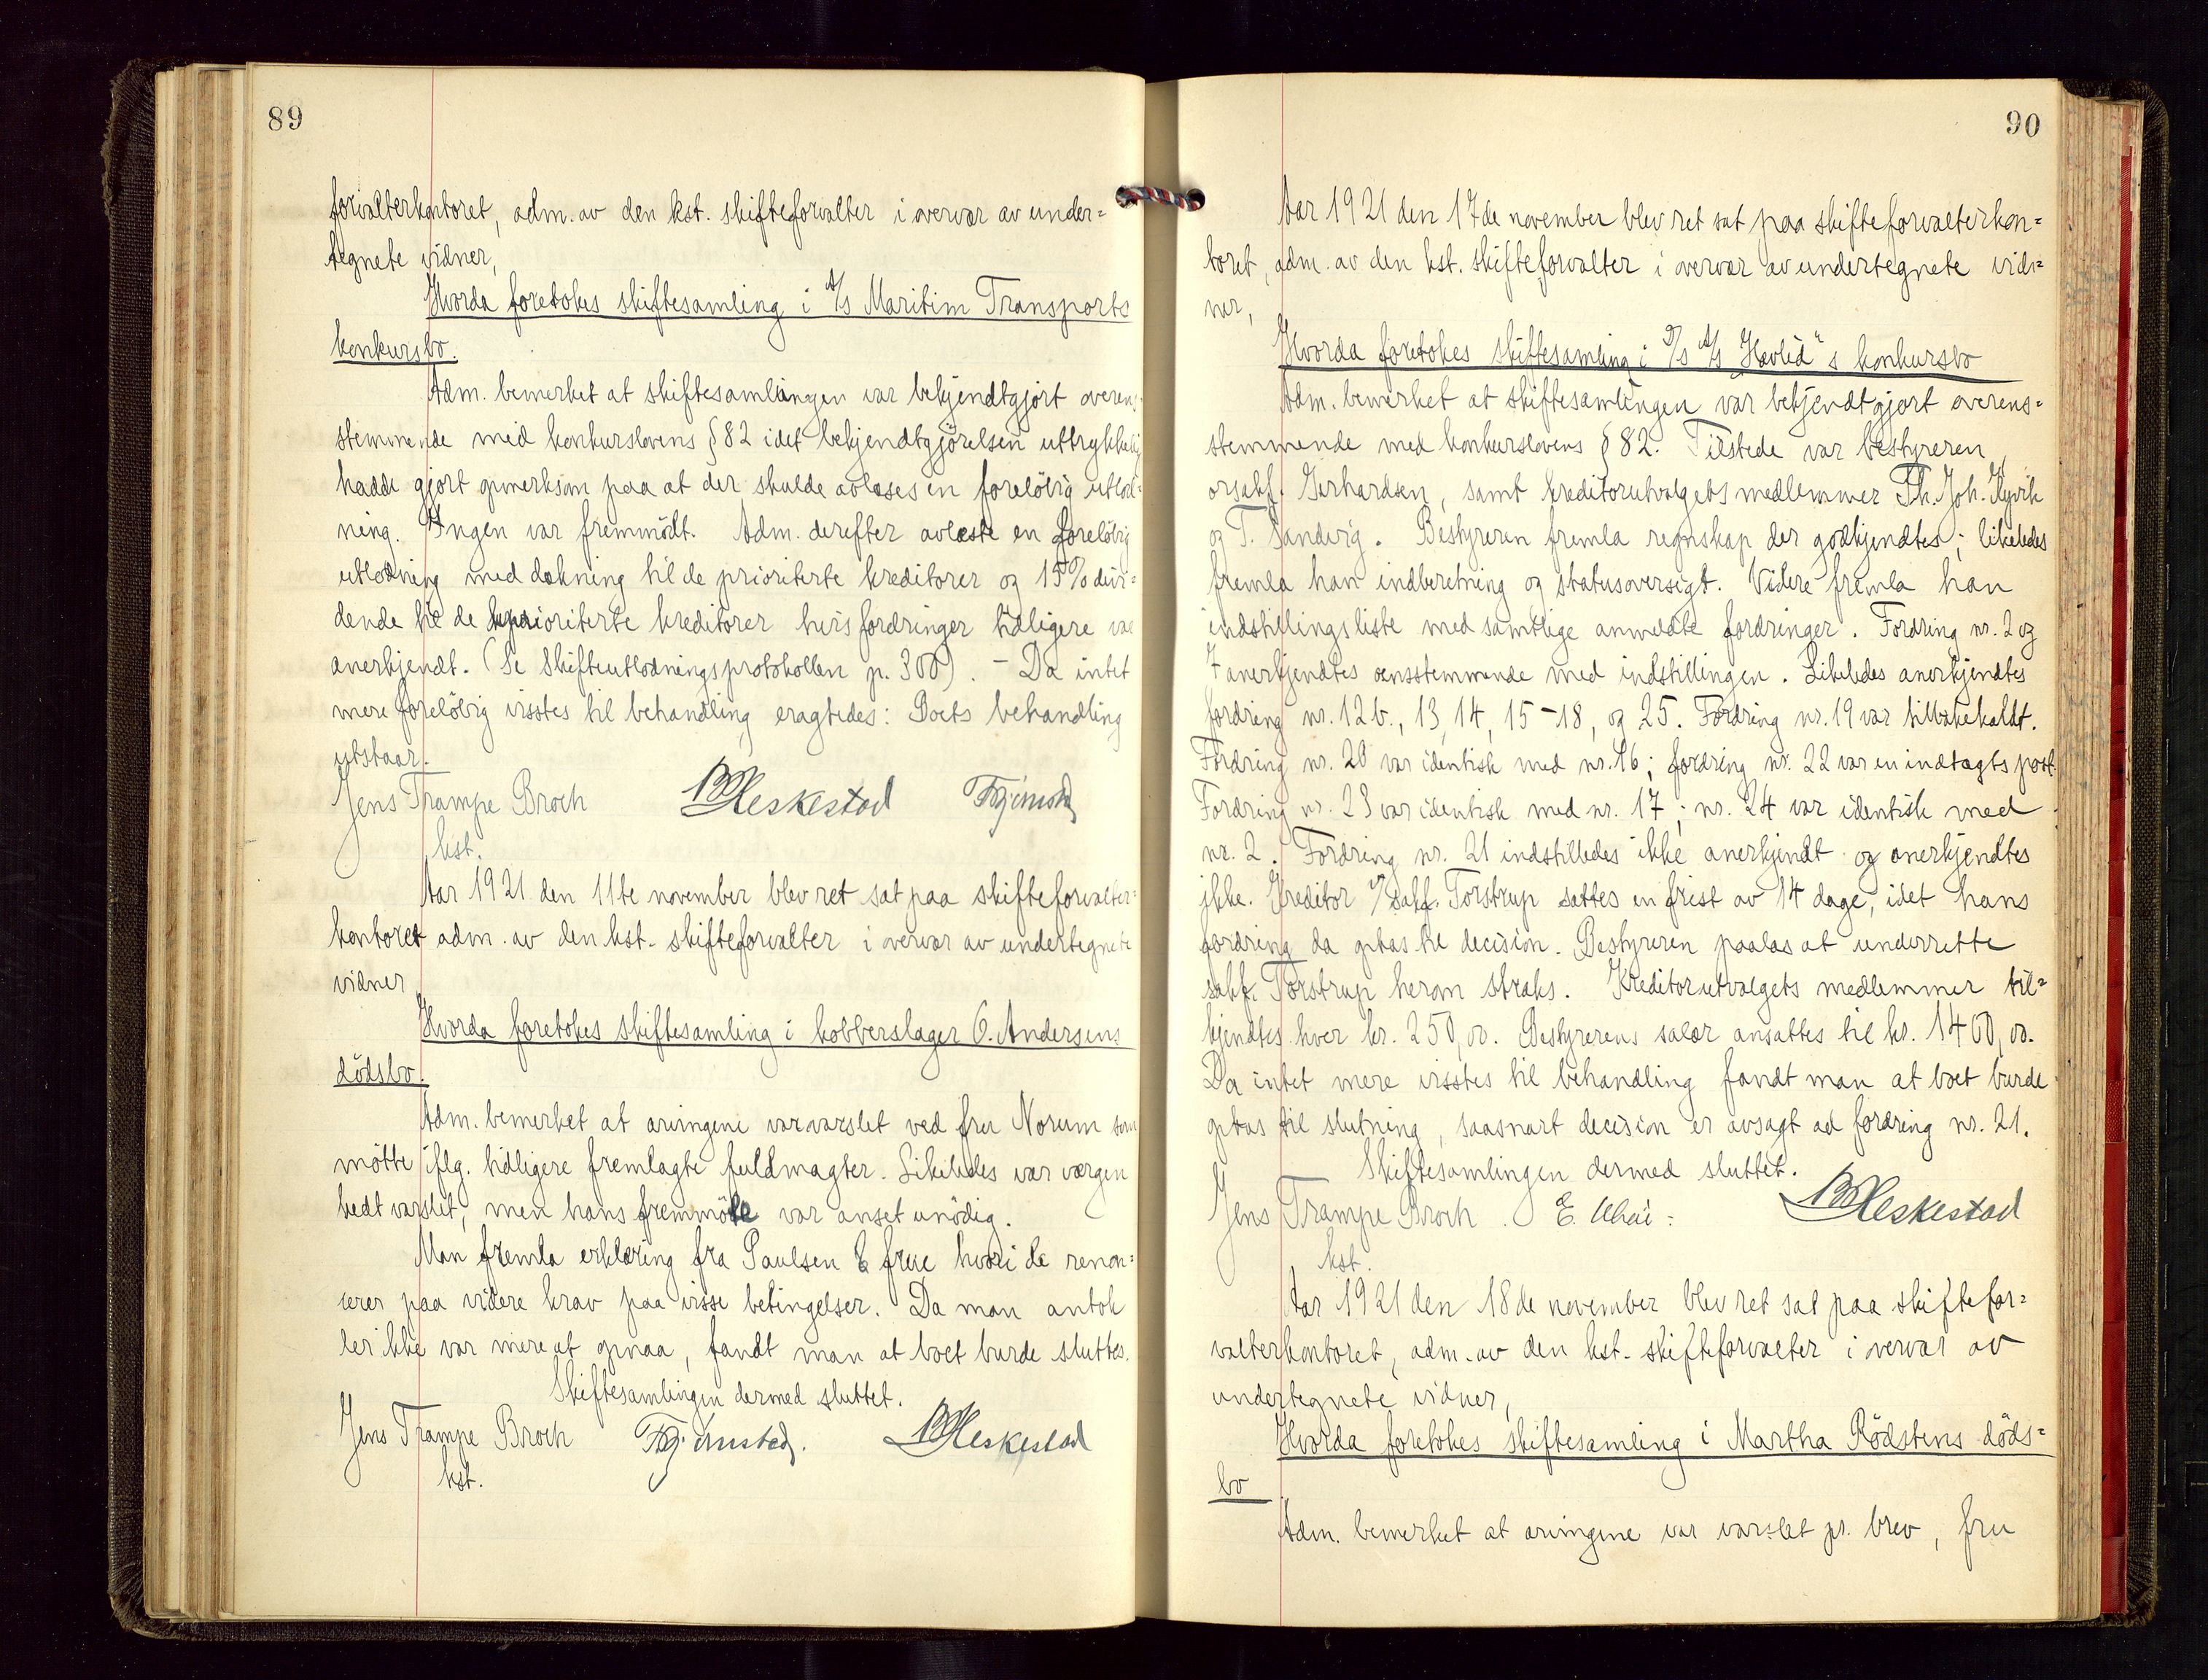 89
forvalterkontoret, adm. av den kst. skifteforvalter i overvær av under=
tegnete vidner,
Hvorda foretokes skiftesamling i A/S Maritim Transports
konkursbo.
Adm. bemerket at skiftesamlingen var bekjendtgjort overens-
stemmende med konkurslovens § 82 idet bekjendtgjörelsen uttrykkelig
hadde gjort opmerksom paa at der skulde avlæses en forelöbig utlod=
ning. Ingen var fremmödt. Adm. derefter avlæste en forelöbig
utlodning med dækning til de prioriterte kreditorer og 15% divi=
dende til de uprioriterte kreditorer hvis fordringer tidligere var
anerkjendt. (Se Skifteutlodningsprotokollen p. 300). - Da intet
mere forelöbig visstes til behandling eragtedes: Boets behandling
utstaar.
Jens Trampe Broch BHeskestad
kst.
Aar 1921 den 11te november blev ret sat paa skifteforvalter=
kontoret adm. av den kst. skifteforvalter i overvær av undertegnete
vidner
Hvorda foretokes skiftesamling i kobberslager O. Andersens
dödsbo.
Adm. bemerket at arvingene var varslet ved fru Norum som
mötte iflg. tidligere fremlagte fuldmagter. Likeledes var værgen
bedt varslet, men hans fremmöte var anset unödig.
Man fremla erklæring fra Paulsen & frue hvori de renon=
cerer paa videre krav paa visse betingelser. Da man antok
der ikke var mere at opnaa, fandt man at boet burde sluttes.
Skiftesamlingen dermed sluttet.
Jens Trampe Broch BHeskestad
kst.
90
Aar 1921 den 17de november blev ret sat paa skifteforvalterkon=
toret, adm. av den kst. skifteforvalter i overvær av undertegnete vid=
ner,
Hvorda foretokes skiftesamling i D/S A/S Havlid"s konkursbo
Adm. bemerket at skiftesamlingen var bekjendtgjort overens=
stemmende med konkurslovens § 82. Tilstede var bestyreren,
orsakf. Gerhardsen, samt kreditorutvalgets medlemmer Th. Joh. Kyvik
og T. Sandvig. Bestyreren fremla regnskap der godkjendtes; likeledes
fremla han indberetning og statusoversigt. Videre fremla han
indstillingsliste med samtlige anmeldte fordringer. Fordring nr. 2 og
7 anerkjendtes oensstemmende med indstillingen. Likeledes anerkjendtes
fordring nr. 12b., 13, 14, 15-18, og 25. Fordring nr. 19 var tilbakekaldt.
Fordring nr. 20 var identisk med nr. 16; fordring nr. 22 var en indtægtspost.
Fordring nr. 23 var identisk med nr. 17; nr. 24 var identisk med
nr. 2. Fordring nr. 21 indstilledes ikke anerkjendt og anerkjendtes
ikke. Kreditor o/sakf. Torstrup sattes en frist av 14 dage, idet hans
fordring da optas til decision. Bestyreren paalas at underrette
sakf. Torstrup herom straks. Kreditorutvalgets medlemmer til=
kjendtes hver kr. 250,00. Bestyrerens salær ansattes til kr. 1400,00.
Da intet mere visstes til behandling fandt man at boet burde
optas til slutning, saasnart decision er avsagt ad fordring nr. 21.
Skiftesamlingen dermed sluttet.
Jens Trampe Broch. E. BHeskestad
kst.
Aar 1921 den 18de november blev ret sat paa skiftefor=
valterkontoret, adm. av den kst. skifteforvalter i overvær av
undertegnete vidner,
Hvorda foretokes skiftesamling i Martha Rödstens döds=
bo
Adm. bemerket at arvingene var varslet pr. brev, fru